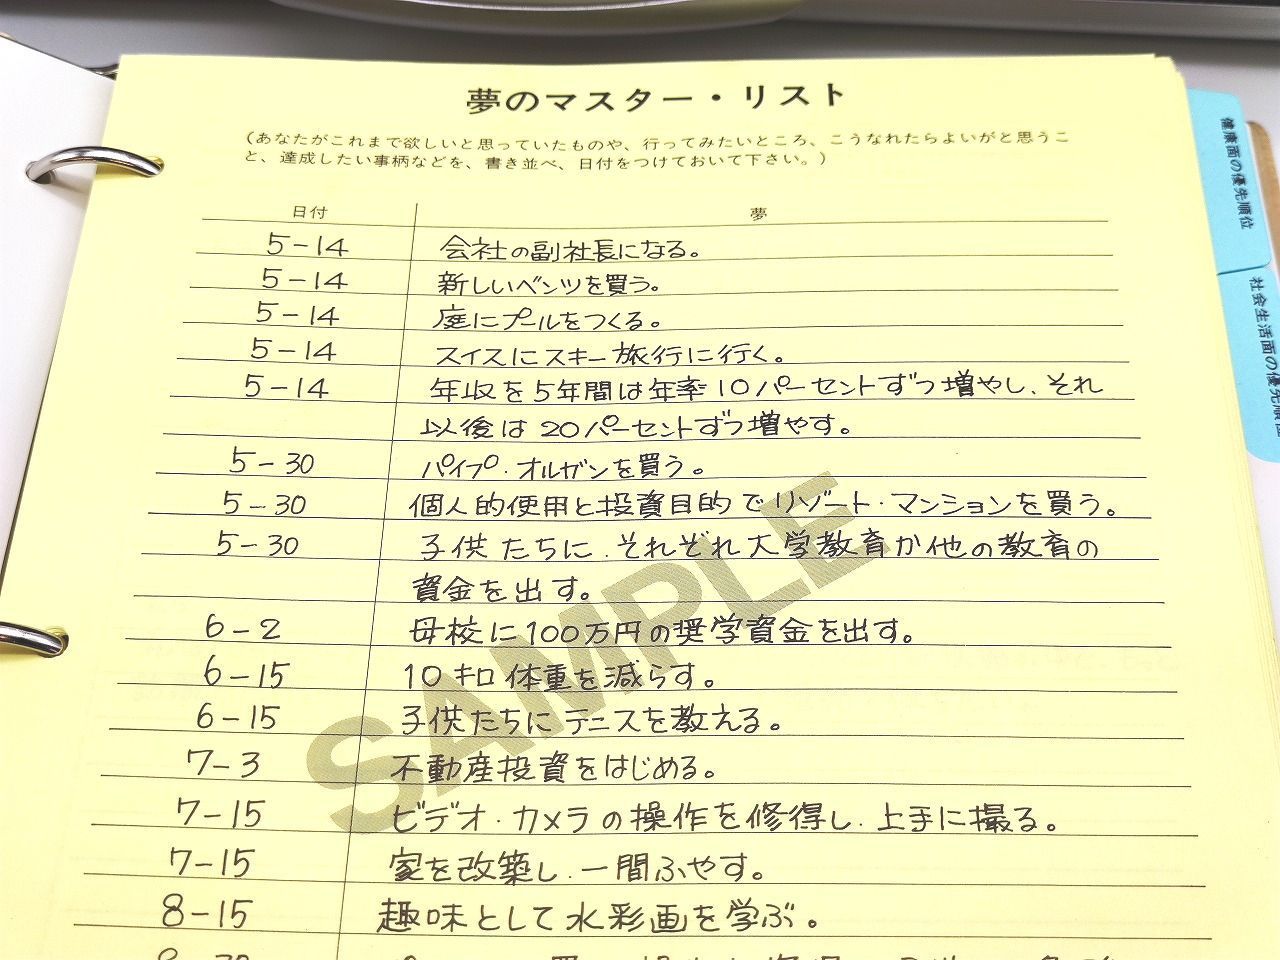 夢のマスター・リスト
(あなたがこれまで欲しいと思っていたものや、行ってみたいところ、こうなれたらよいがと思うこ
と、達成したい事柄などを、書き並べ、日付をつけておいて下さい。)
日付 夢
5-14 会社の副社長になる。
5-14 新しいベンツを買う。
5-14 庭にプールをつくる。
5-14 スイスにスキー旅行に行く。
5-14 年収を5年間は年率10パーセントずつ増やし、それ
以後は20パーセントずつ増やす。
5-30 パイプ・オルガンを買う。
5-30 個人的使用と投資目的でリゾート・マンションを買う。
5-30 子供たちに、それぞれ大学教育か他の教育の
資金を出す。
6-2 母校に100万円の奨学資金を出す。
6-15 10キロ体重を減らす。
6-15 子供たちにテニスを教える。
7-3 不動産投資をはじめる。
7-15 ビデオ・カメラの操作を修得し、上手に撮る。
7-15 家を改築し、一間ふやす。
8-15 趣味として水彩画を学ぶ。
SAMPLE
健康面の優先順位
社会生活面の優先順位